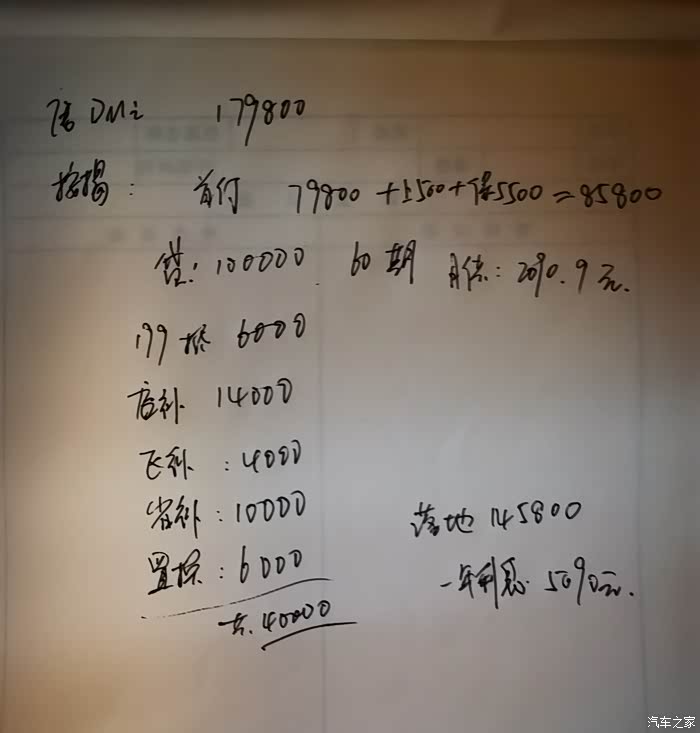 唐DMi 179800
按揭: 首付 79800+上500+保5500=85800
贷: 100000 60期 月供: 2090.9元.
199抵 6000
店补 14000
飞补: 4000
省补: 10000
置换: 6000
共. 40000
落地 145800
一年利息 5090元.
汽车之家